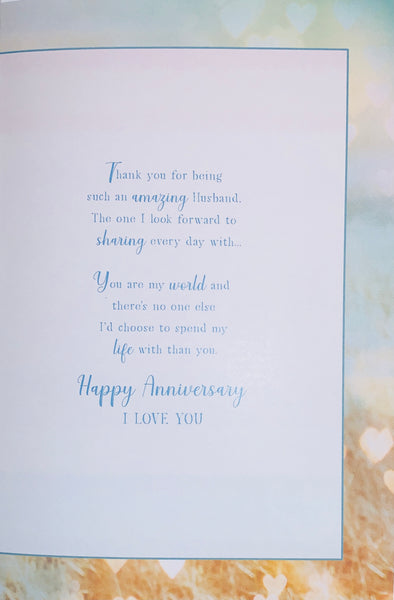 Thank you for being
such an amazing Husband,
The one I look forward to
sharing every day with...
You are my world and
there's no one else
I'd choose to spend my
life with than you.
Happy Anniversary
I LOVE YOU